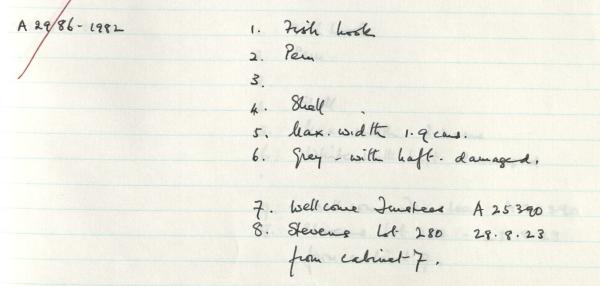 A 2986-1982 1. Fish hook
2. Peru
3.
4. Shell
5. Max. width 1.9 cms.
6. Grey - with haft. damaged.
7. Wellcome Trustees A 25390
8. Stevens Lot 280 28.8.23
from cabinet 7.